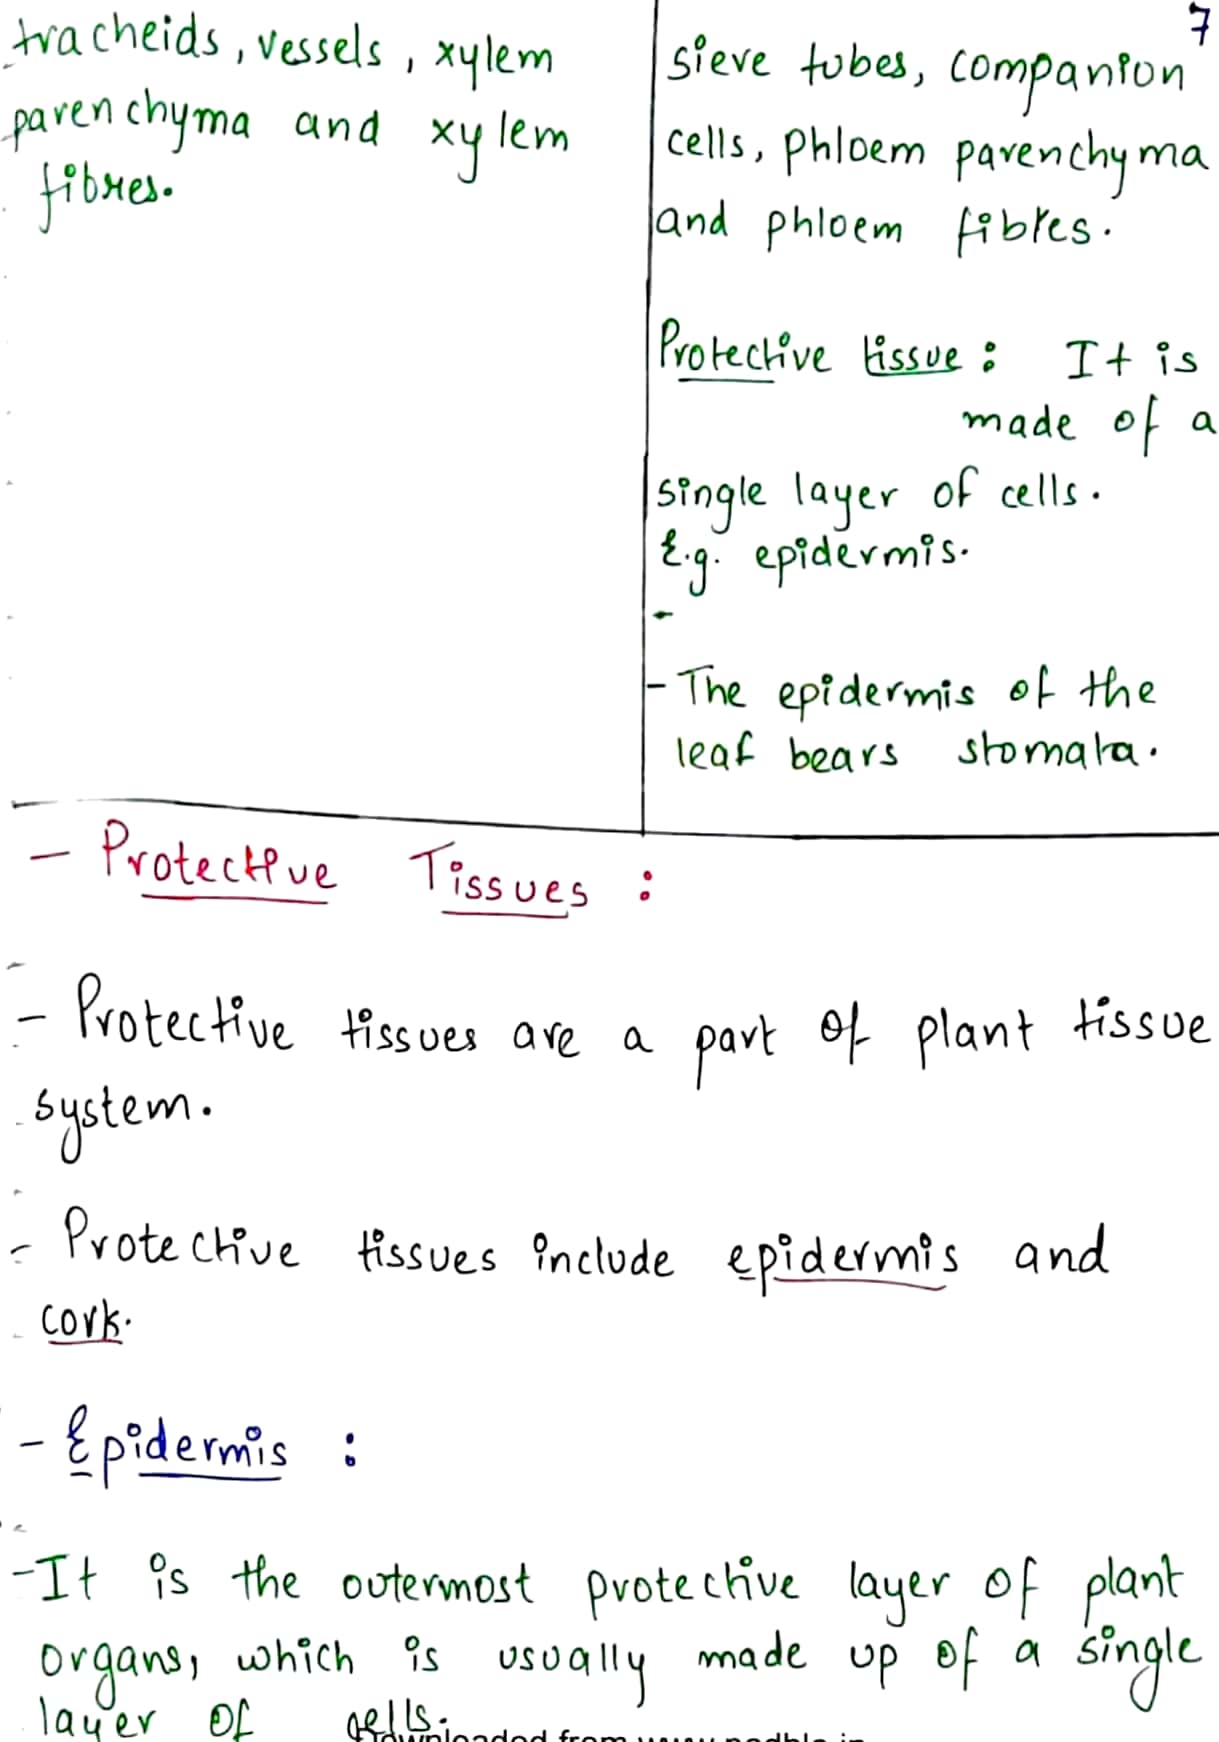 7
tracheids, vessels, xylem
parenchyma and xylem
fibres.
sieve tubes, companion
cells, phloem parenchyma
and phloem fibres.
Protective tissue: It is
made of a
single layer of cells.
E.g. epidermis.
-
- The epidermis of the
leaf bears stomata.
- Protective Tissues :
- Protective tissues are a part of plant tissue
system.
- Protective tissues include epidermis and
cork.
- Epidermis :
- It is the outermost protective layer of plant
organs, which is usually made up of a single
layer of cells.